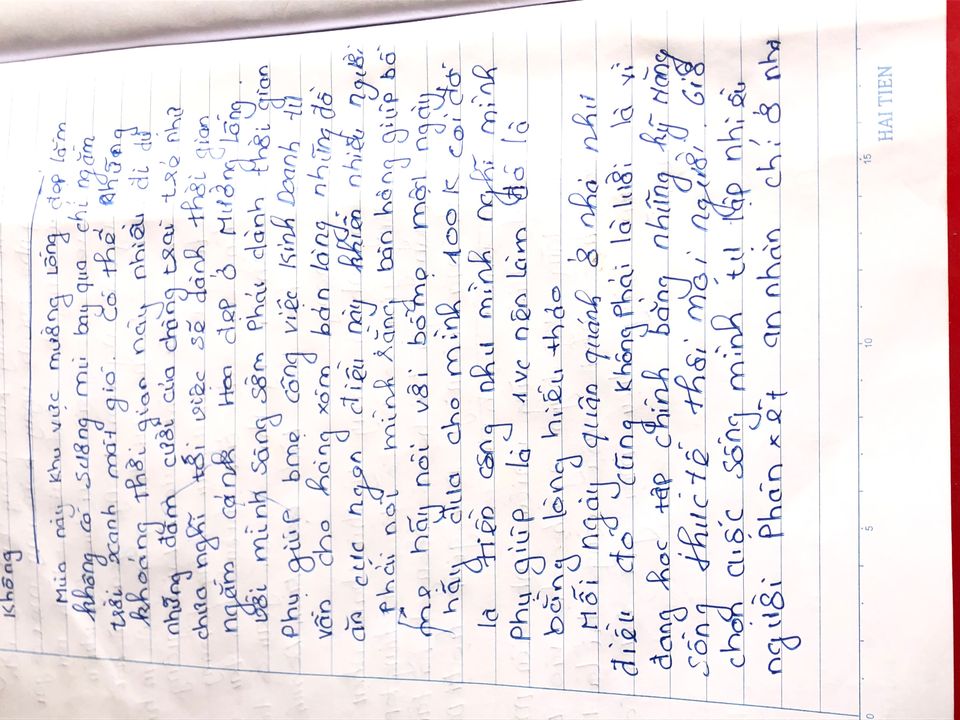 Không
Mùa này khu vực mường lống đẹp lắm
không có sương mù bay qua chỉ ngắm
trời xanh mát gió. có thể những
khoảng thời gian này nhiều đi dự
những đám cưới của chàng trai trẻ như
chưa nghĩ tới việc sẽ dành thời gian
ngắm cảnh Hoa đẹp ở Mường Lống.
Với mình sáng sớm phải dành thời gian
Phụ giúp bmẹ công việc kinh Doanh tự
vấn cho hàng xóm bán làng những đồ
ăn cực ngon điều này khiến nhiều người
phải nói mình rằng bán hàng giúp bố
mẹ hãy nói với bố mẹ một ngày
hãy đưa cho mình 100k coi đó
là tiền công như mình nghĩ mình
Phụ giúp là 1 vc nên làm đó là
bằng lòng hiếu thảo
Mỗi ngày quận quánh ở nhà như
điều đó cũng không phải là lười là vì
đang học tập chính bằng những kỹ năng
sống thực tế thôi mọi người. Giờ
chọn cuộc sống mình tự lập nhiều
người Phán xét an nhàn chỉ ở nhà
0 5 10 15
HAI TIEN